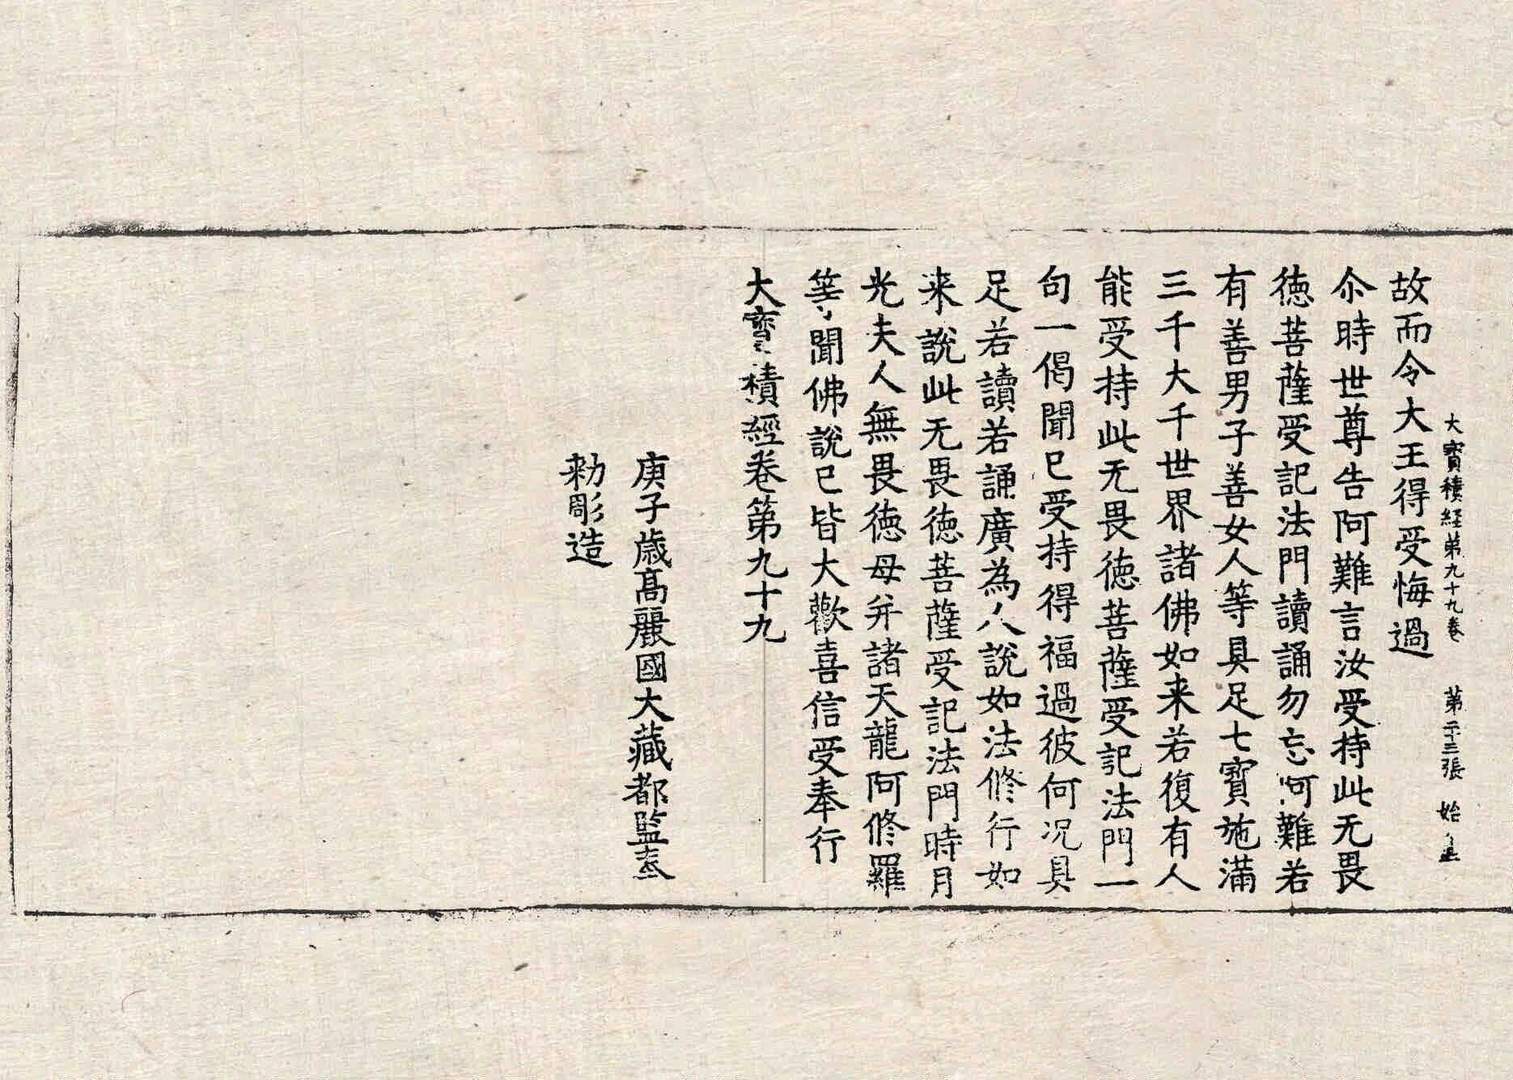 大寶積経第九十九卷 第二十三張 始
故而令大王得受悔過
尒時世尊告阿難言汝受持此无畏
徳菩薩受記法門讀誦勿忘阿難若
有善男子善女人等具足七寶施滿
三千大千世界諸佛如来若復有人
能受持此无畏徳菩薩受記法門一
句一偈聞已受持得福過彼何况具
足若讀若誦廣為人說如法修行如
来說此无畏徳菩薩受記法門時月
光夫人無畏徳母并諸天龍阿修羅
等聞佛說已皆大歡喜信受奉行
大寶積經卷第九十九
庚子歳髙麗國大藏都監奉
勑彫造